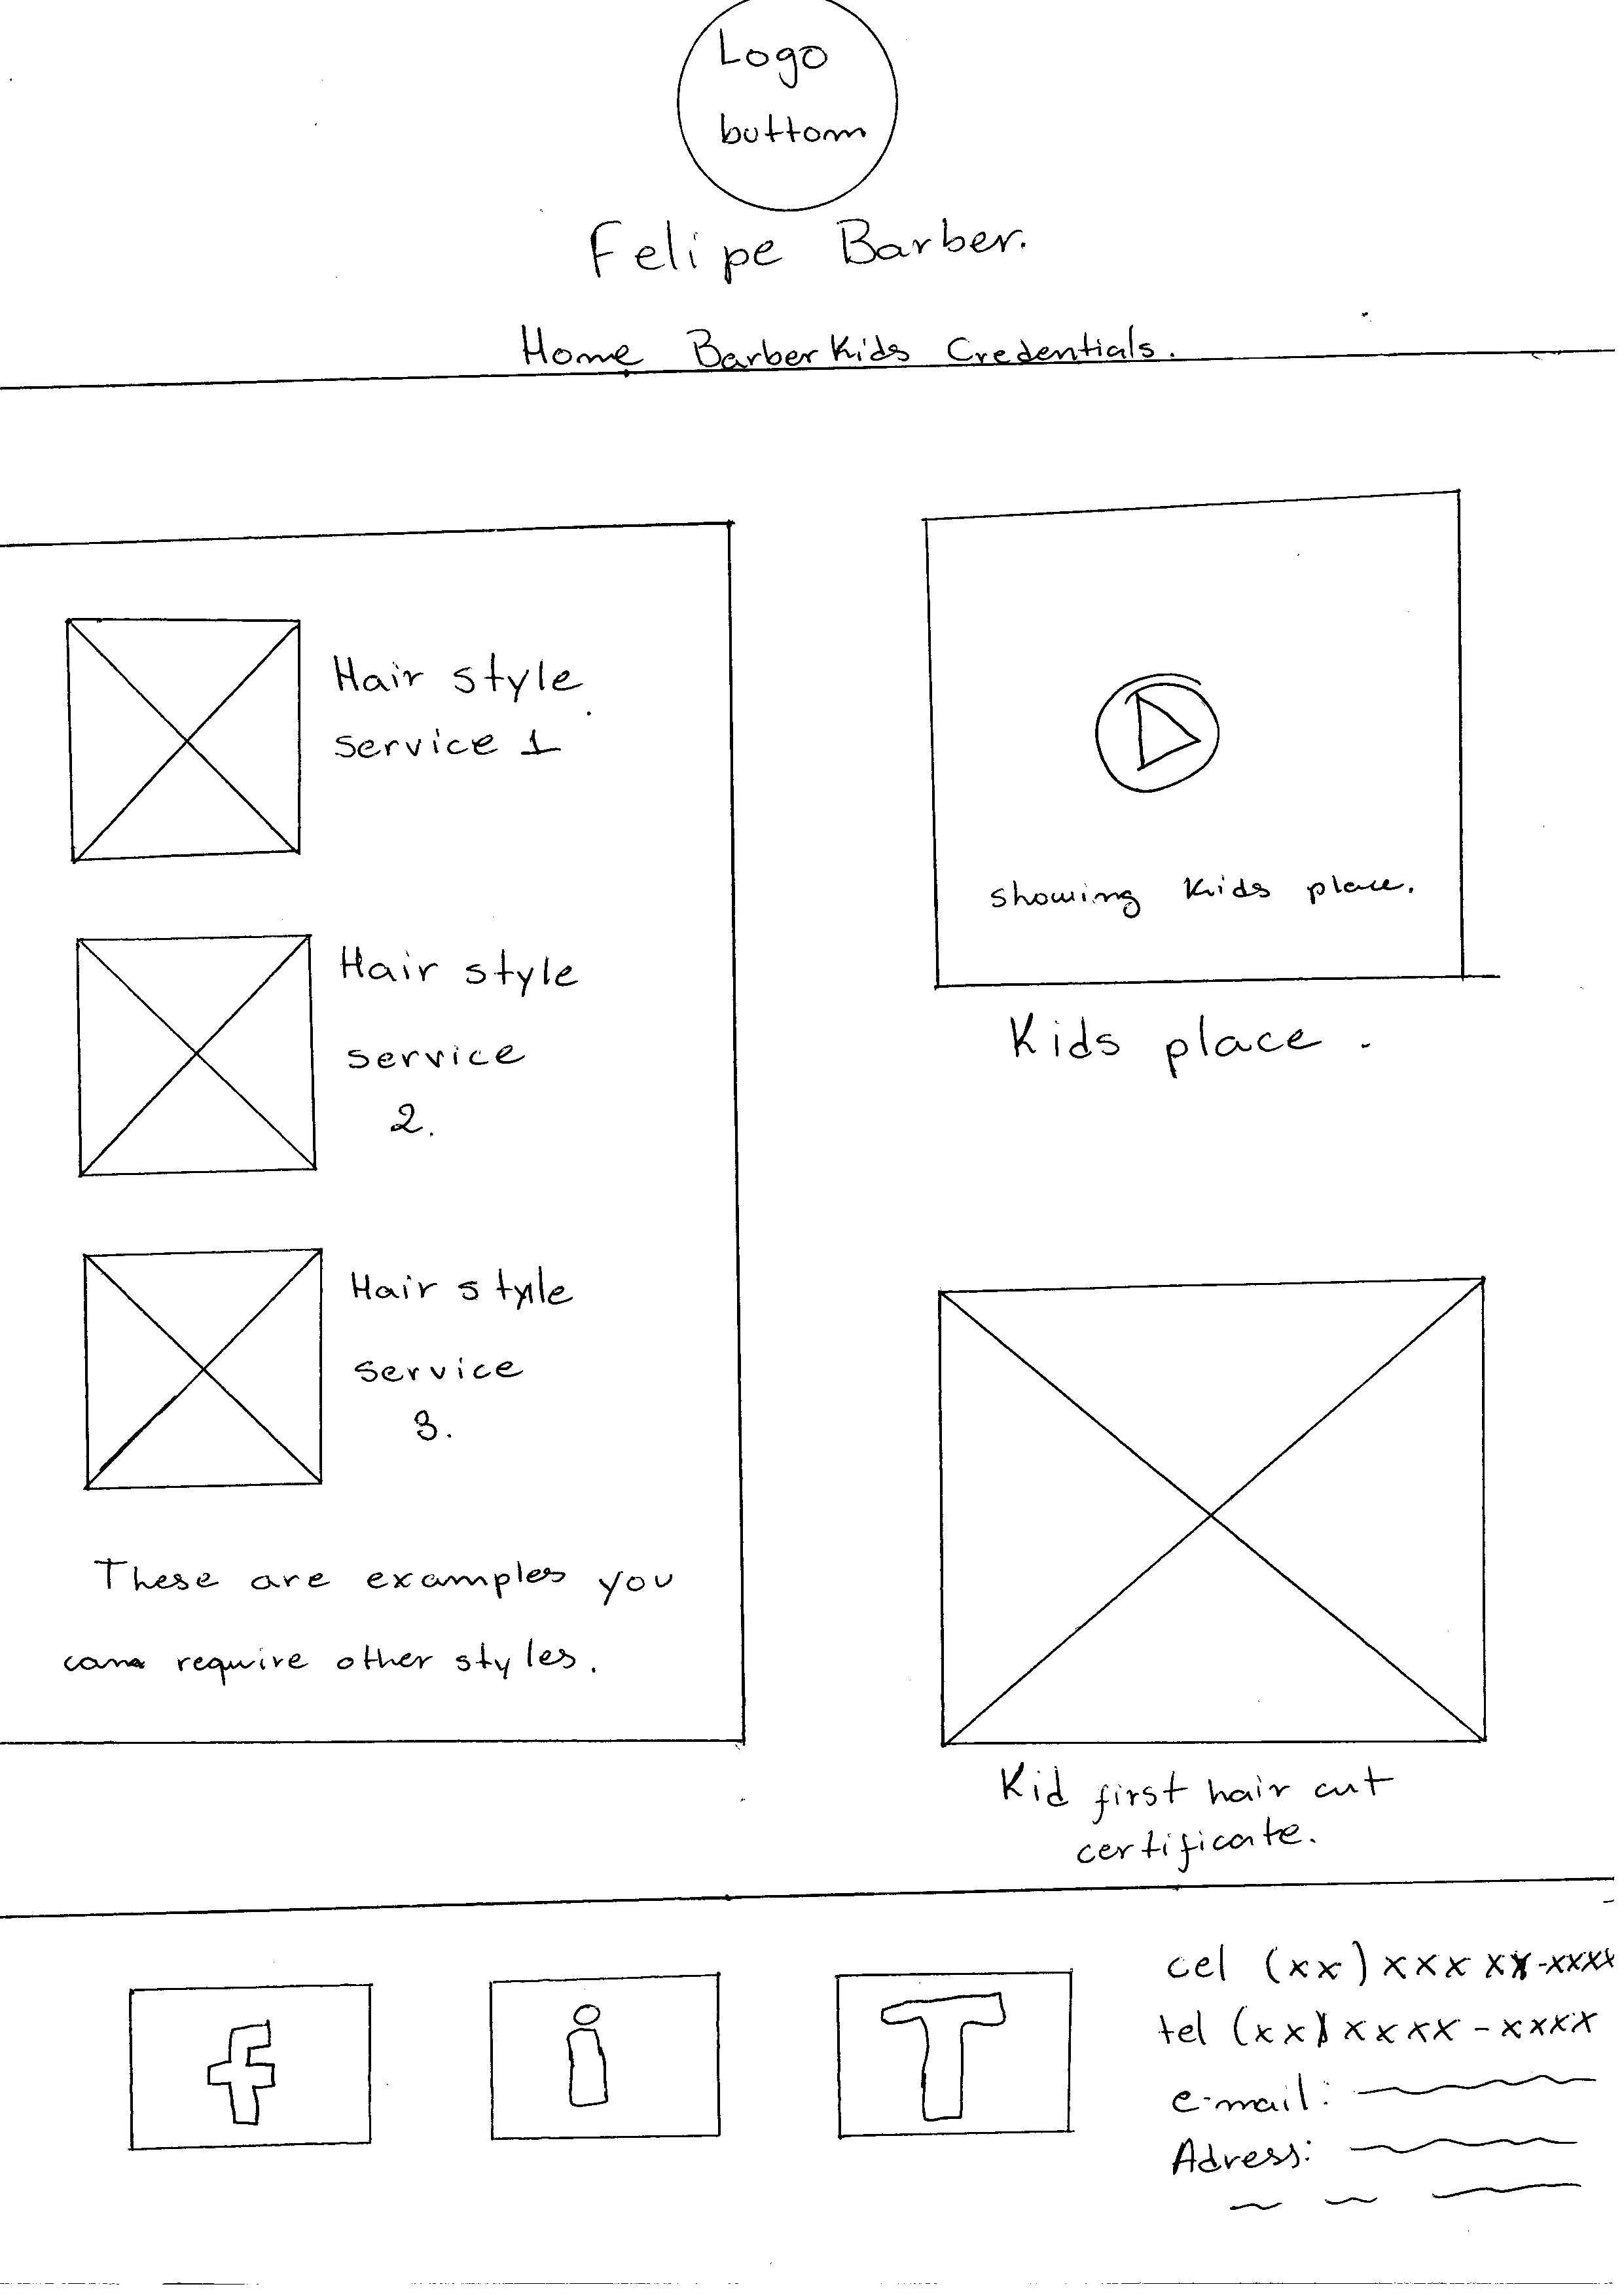 Logo
buttom
Felipe Barber.
Home Barber Kids Credentials.
Hair style
service 1
Hair style
service
2.
Hair style
service
3.
These are examples you
can require other styles.
showing Kids place.
Kids place.
Kid first hair cut
certificate.
f
i
T
cel (xx) xxx xx-xxxx
tel (xx) xxxx-xxxx
e-mail:
Adress: